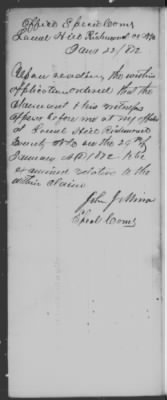 Office Special Coms
Laurel Hill Richmond Co N.C.
Jany 22/1872
Upon reading the within
application ordered that the
Claimant & his witnesses
appear before me at my office
at Laurel Hill Richmond
County N.C. on the 29th of
January AD 1872 to be
examined relative to the
within claim
John J.
Special Coms